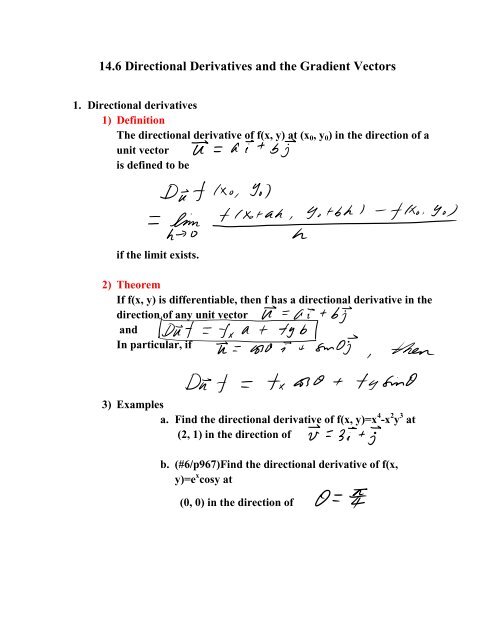 14.6 Directional Derivatives and the Gradient Vectors
1. Directional derivatives
1) Definition
The directional derivative of f(x, y) at (x₀, y₀) in the direction of a
unit vector u⃗ = a i⃗ + b j⃗
is defined to be
D_u⃗ f (x₀, y₀)
= lim_{h→0} (f(x₀+ah, y₀+bh) − f(x₀, y₀)) / h
if the limit exists.
2) Theorem
If f(x, y) is differentiable, then f has a directional derivative in the
direction of any unit vector u⃗ = a i⃗ + b j⃗
and D_u⃗ f = f_x a + f_y b
In particular, if u⃗ = cosθ i⃗ + sinθ j⃗ , then
D_u⃗ f = f_x cosθ + f_y sinθ
3) Examples
a. Find the directional derivative of f(x, y)=x⁴-x²y³ at
(2, 1) in the direction of v⃗ = 3i⃗ + j⃗
b. (#6/p967)Find the directional derivative of f(x,
y)=eˣcosy at
(0, 0) in the direction of θ = π/4